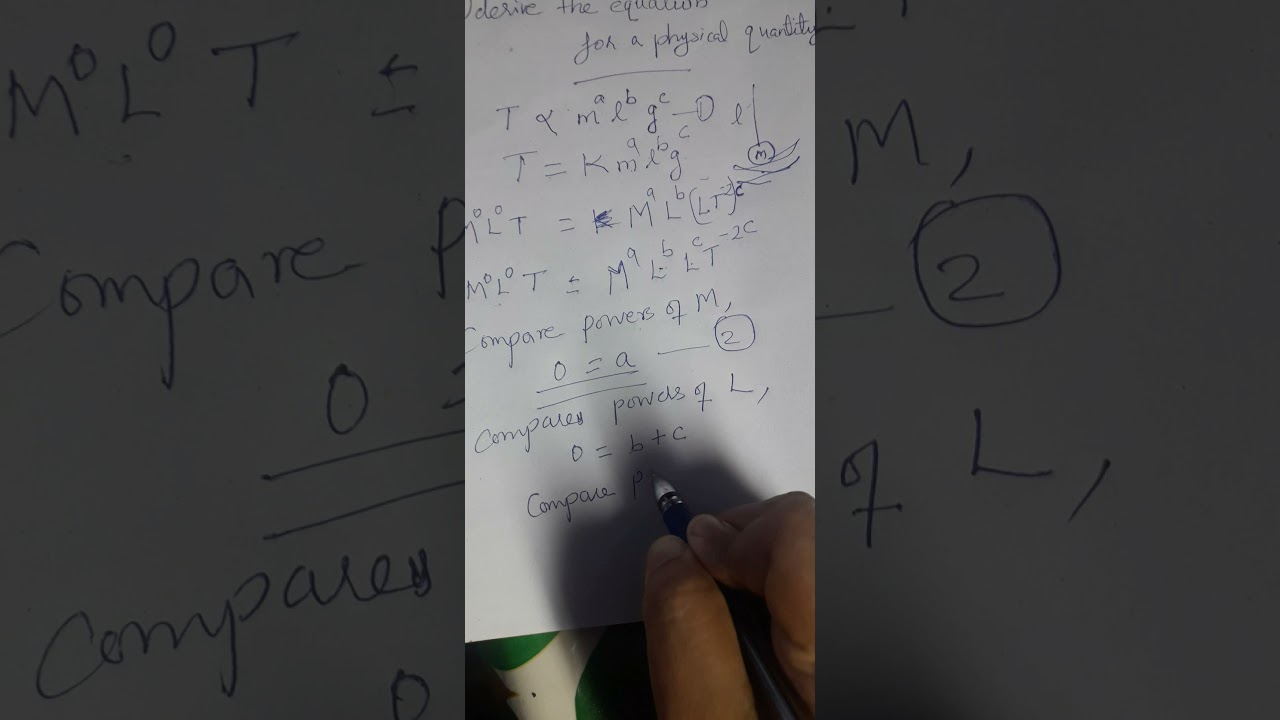 derive the equation
for a physical quantity
T ∝ m^a l^b g^c —① l
T = K m^a l^b g^c m
M^0 L^0 T = K M^a L^b (LT^-2)^c
M^0 L^0 T = M^a L^b L^c T^-2c
Compare powers of M,
0 = a — ②
Compares powers of L,
0 = b + c
Compare P